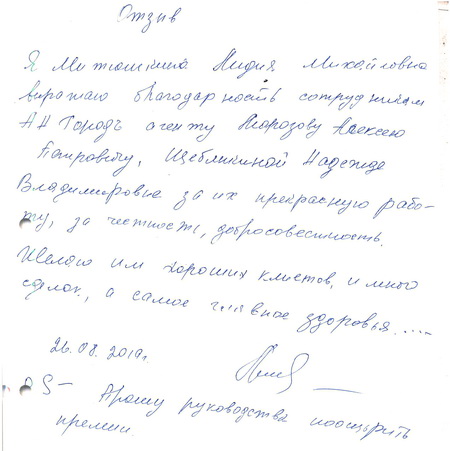 Отзыв
Я Митюшкина Лидия Михайловна
выражаю благодарность сотрудникам
АН Городъ агенту Морозову Алексею
Петровичу, Щебликиной Надежде
Владимировне за их прекрасную рабо-
ту, за честность, добросовестность.
Желаю им хороших клиетов, и много
сделок, а самое главное здоровья....
26.08.2010г.
PS — Прошу руководства поощрить
премии